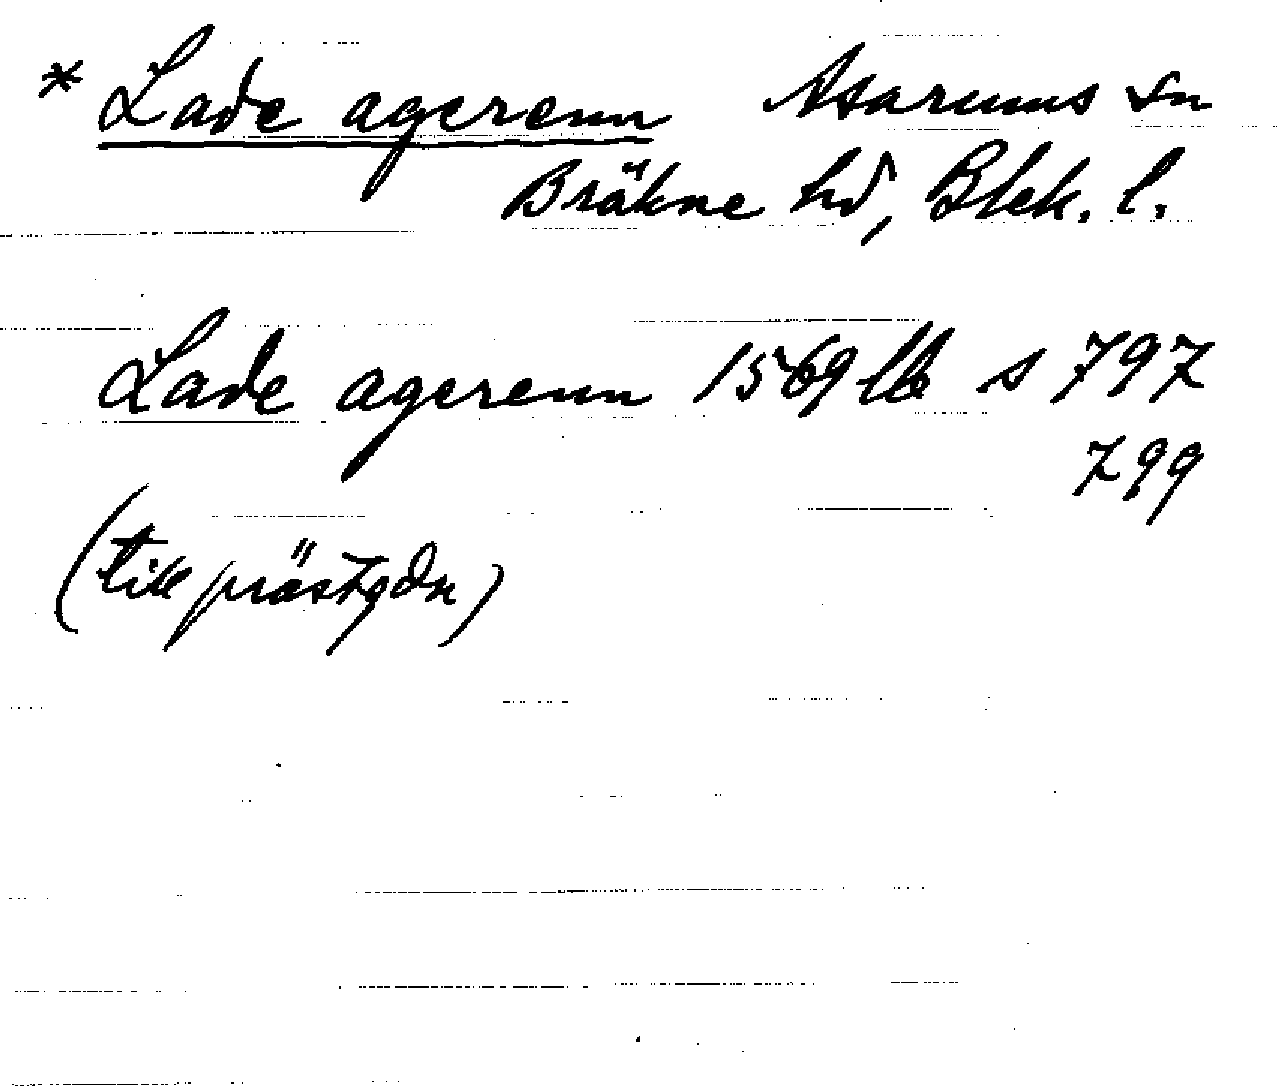 * Lade agerenn Asarums sn
Bräkne hd, Blek. l.
Lade agerenn 1569 lb s 797
799
(till prästgdn)